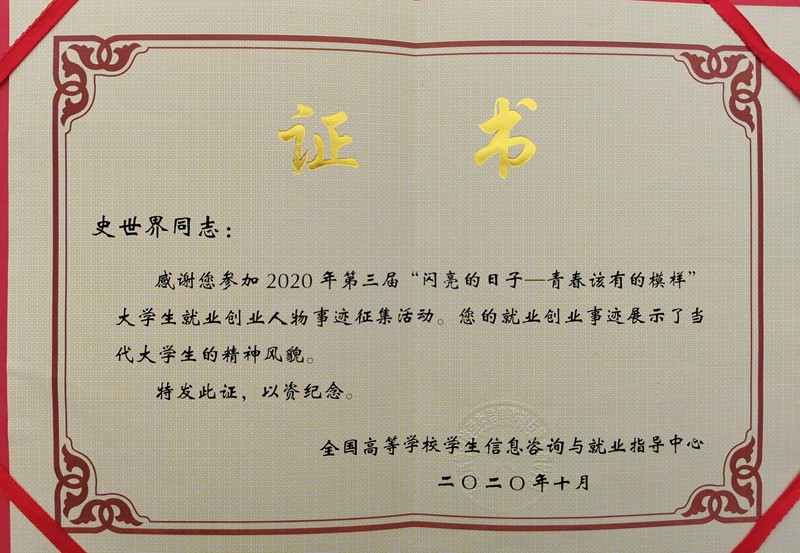 证书
史世界同志：
感谢您参加2020年第三届“闪亮的日子—青春该有的模样”
大学生就业创业人物事迹征集活动。您的就业创业事迹展示了当
代大学生的精神风貌。
特发此证，以资纪念。
全国高等学校学生信息咨询与就业指导中心
二〇二〇年十月